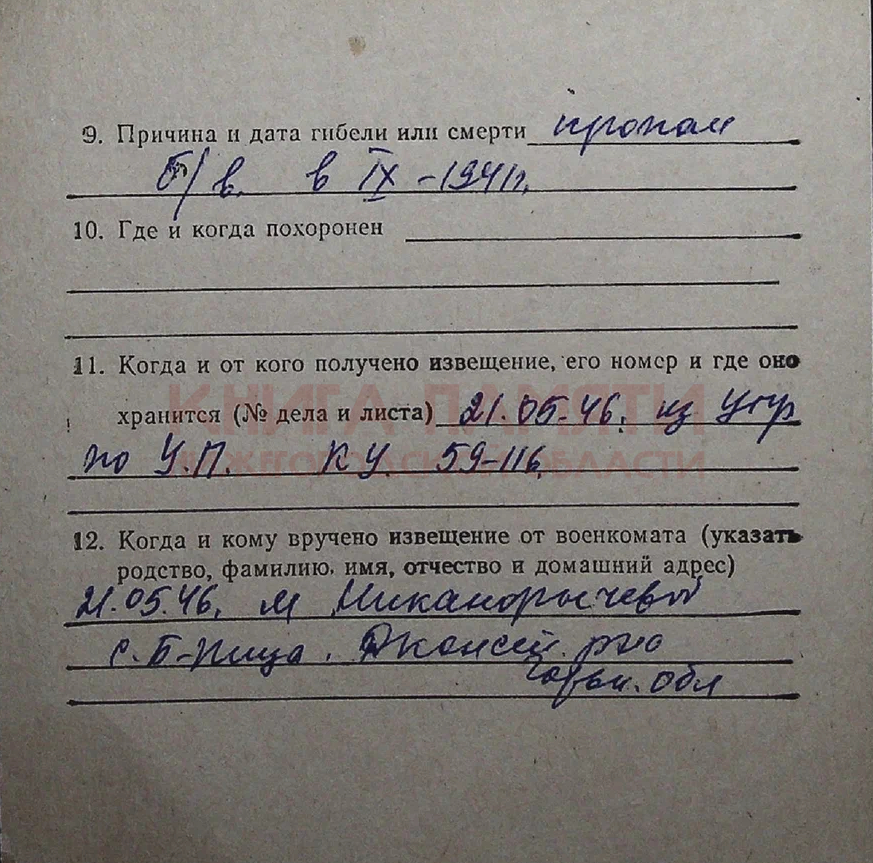 9. Причина и дата гибели или смерти пропал
б/в. в IX - 1941г.
10. Где и когда похоронен
11. Когда и от кого получено извещение, его номер и где оно
КНИГА ПАМЯТИ
хранится (№ дела и листа) 21.05.46. из Упр
по У.П. КУ. 59-116.
НИЖЕГОРОДСКОЙ ОБЛАСТИ
12. Когда и кому вручено извещение от военкомата (указать
родство, фамилию, имя, отчество и домашний адрес)
21.05.46. М Никанорычевой
с. Б-Пица. Дконсей. р-но
Горьк. обл